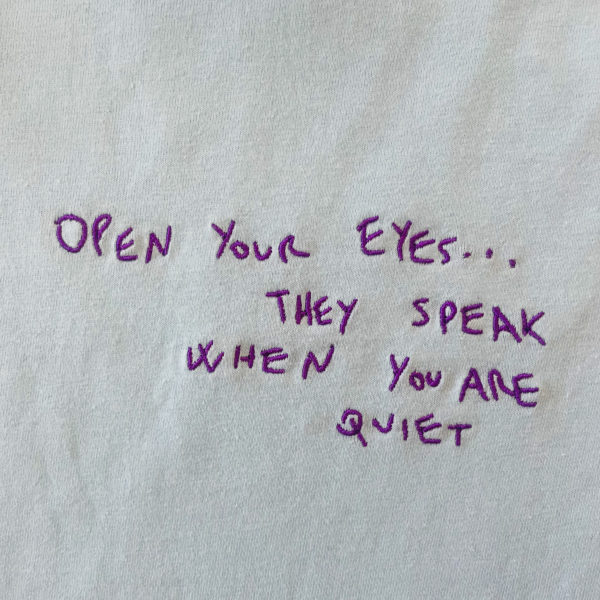 OPEN YOUR EYES...
THEY SPEAK
WHEN YOU ARE
QUIET